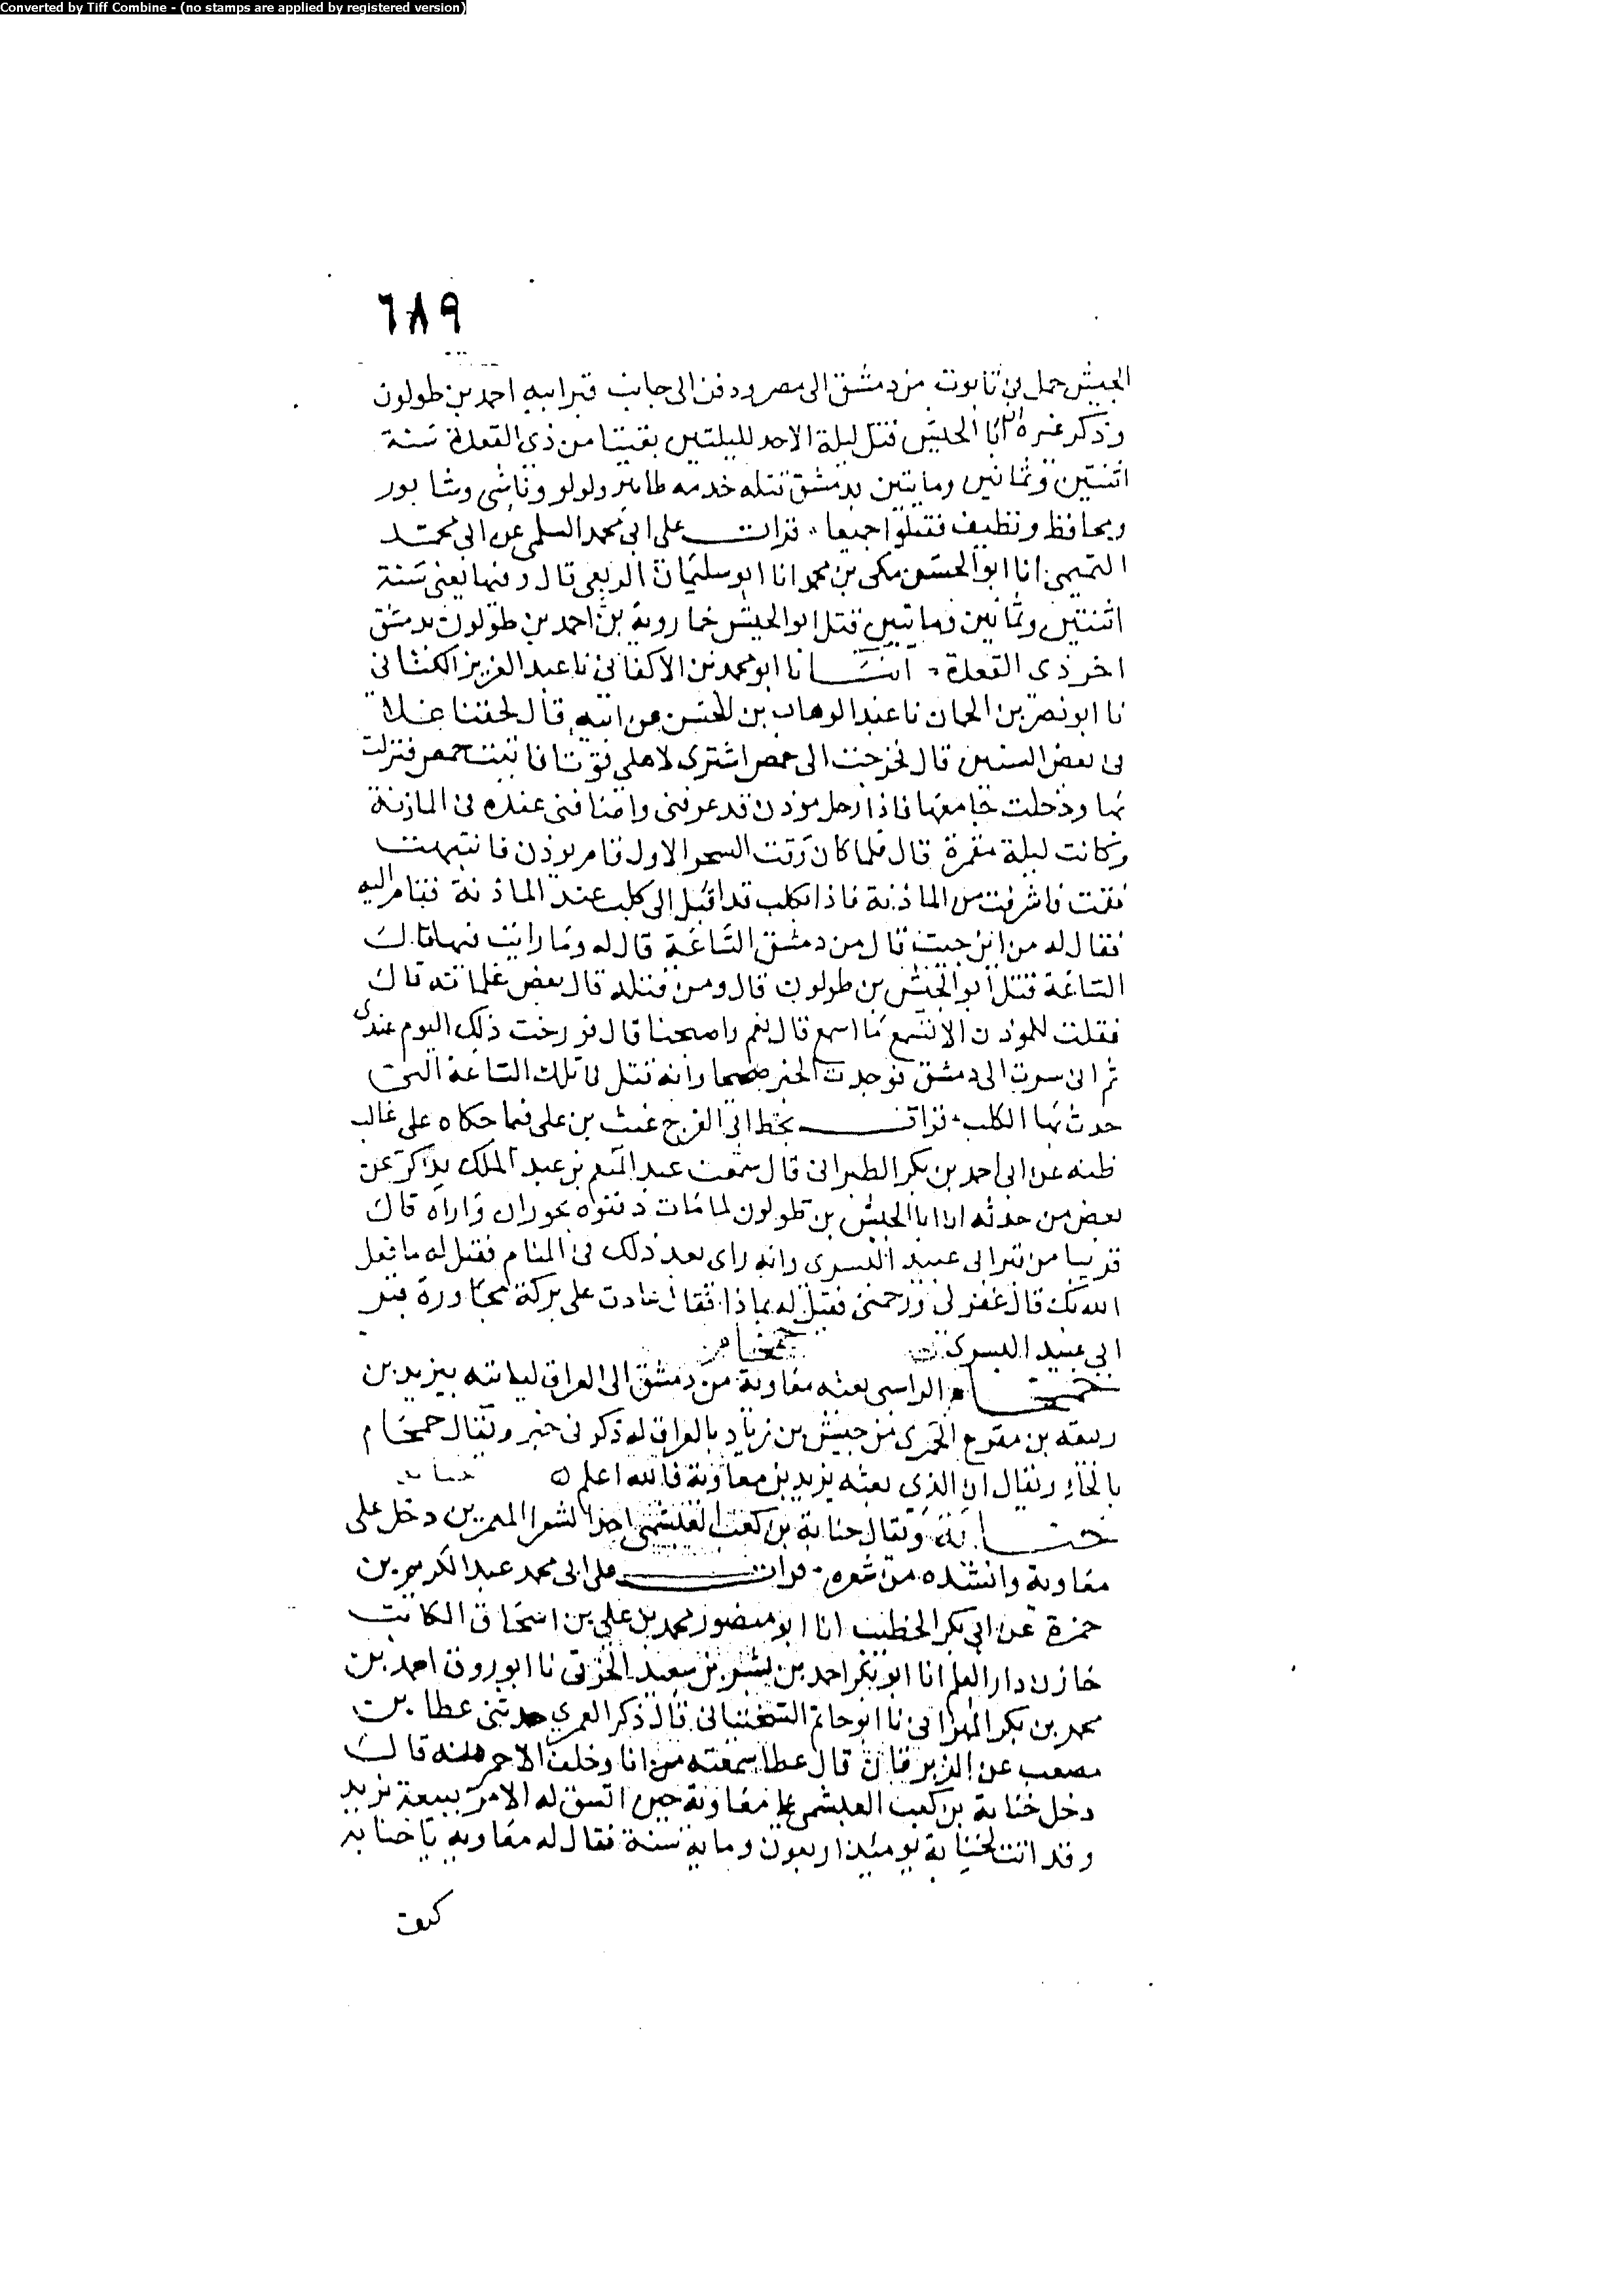 Converted by Tiff Combine - (no stamps are applied by registered version)
٦٨٩
الجيش حمل في تابوت من دمشق الى مصر ودفن الى جانب قبر ابيه احمد بن طولون
وذكر غيره ان ابا الجيش قتل ليلة الاحد لليلتين بقيتا من ذي القعدة سنة
اثنتين وثمانين ومايتين بدمشق قتله خدمه طاهر ولولو وناشي وشابور
ومحافظ ونظيف فقتلوا جميعا قرات على ابي محمد السلمي عن ابي محمد
التميمي انا ابو الحسن مكي بن محمد انا ابو سليمان الربعي قال وفيها يعني سنة
اثنتين وثمانين ومايتين قتل ابو الجيش خمارويه بن احمد بن طولون بدمشق
اخر ذي القعدة انبانا ابو محمد بن الاكفاني نا عبد العزيز الكتاني
نا ابو نصر بن الجبان نا عبد الوهاب بن الحسن عن ابيه قال لحقنا غلا
في بعض السنين قال فخرجت الى حمص اشتري لاهلي قوتا فاتيت حمص فنزلت
بها ودخلت جامعها فاذا رجل موذن قد عرفني واضافني عنده في الماذنة
وكانت ليلة مقمرة قال فلما كان وقت السحر الاول قام يوذن فانتبهت
فقمت فاشرفت من الماذنة فاذا بكلب قد اقبل الى كلب عند الماذنة فقام اليه
فقال له من اين جيت قال من دمشق الساعة قال له وما رايت فيها قال
الساعة قتل ابو الجيش بن طولون قال ومن قتله قال بعض غلمانه قال
فقلت للموذن الا تسمع ما اسمع قال نعم واصبحنا قال فورخت ذلك اليوم عندي
ثم اني سرت الى دمشق فوجدت الخبر صحيحا وانه قتل في تلك الساعة التي
حدث بها الكلب قرات بخط ابي الفرج غيث بن علي فيما حكاه على غالب
ظنه عن ابي احمد بن بكر الطبراني قال سمعت عبد المنعم بن عبد الملك يذاكر عن
بعض من حدثه ان ابا الجيش بن طولون لما مات دفنوه بحوران واراه قال
قريبا من قبر ابي عبيد البسري وانه راى بعد ذلك في المنام فقيل له ما فعل
الله بك قال غفر لي ورحمني فقيل له بماذا فقال عادت علي بركة مجاورة قبر
ابي عبيد البسري
خمخام الراسبي بعثه معاوية من دمشق الى العراق لياتيه بيزيد بن
ربيعه بن مفرغ الحميري من حبيش بن زياد بالعراق له ذكر في خبر ويقال حمحام
بالحا ويقال ان الذي بعثه يزيد بن معاوية فالله اعلم
خنابة ويقال حنابة بن كعب العبشمي احد الشعرا المعمرين دخل على
معاوية وانشده من شعره قرات على ابي محمد عبد الكريم بن
حمزة عن ابي بكر الخطيب انا ابو منصور محمد بن علي بن اسحاق الكاتب
خازن دار العلم انا ابو بكر احمد بن بشر بن سعيد الخرقي نا ابو روق احمد بن
محمد بن بكر الهزاني نا ابو حاتم السجستاني قال ذكر العمري حدثني عطا بن
مصعب عن الزبرقان قال عطا سمعته من انا وخلف الاحمر منه قال
دخل خنابة بن كعب العبشمي على معاوية حين اتسق له الامر ببيعة يزيد
وقد اتت لخنابة يوميذ اربعون وماية سنة فقال له معاوية يا خنابه
كيف